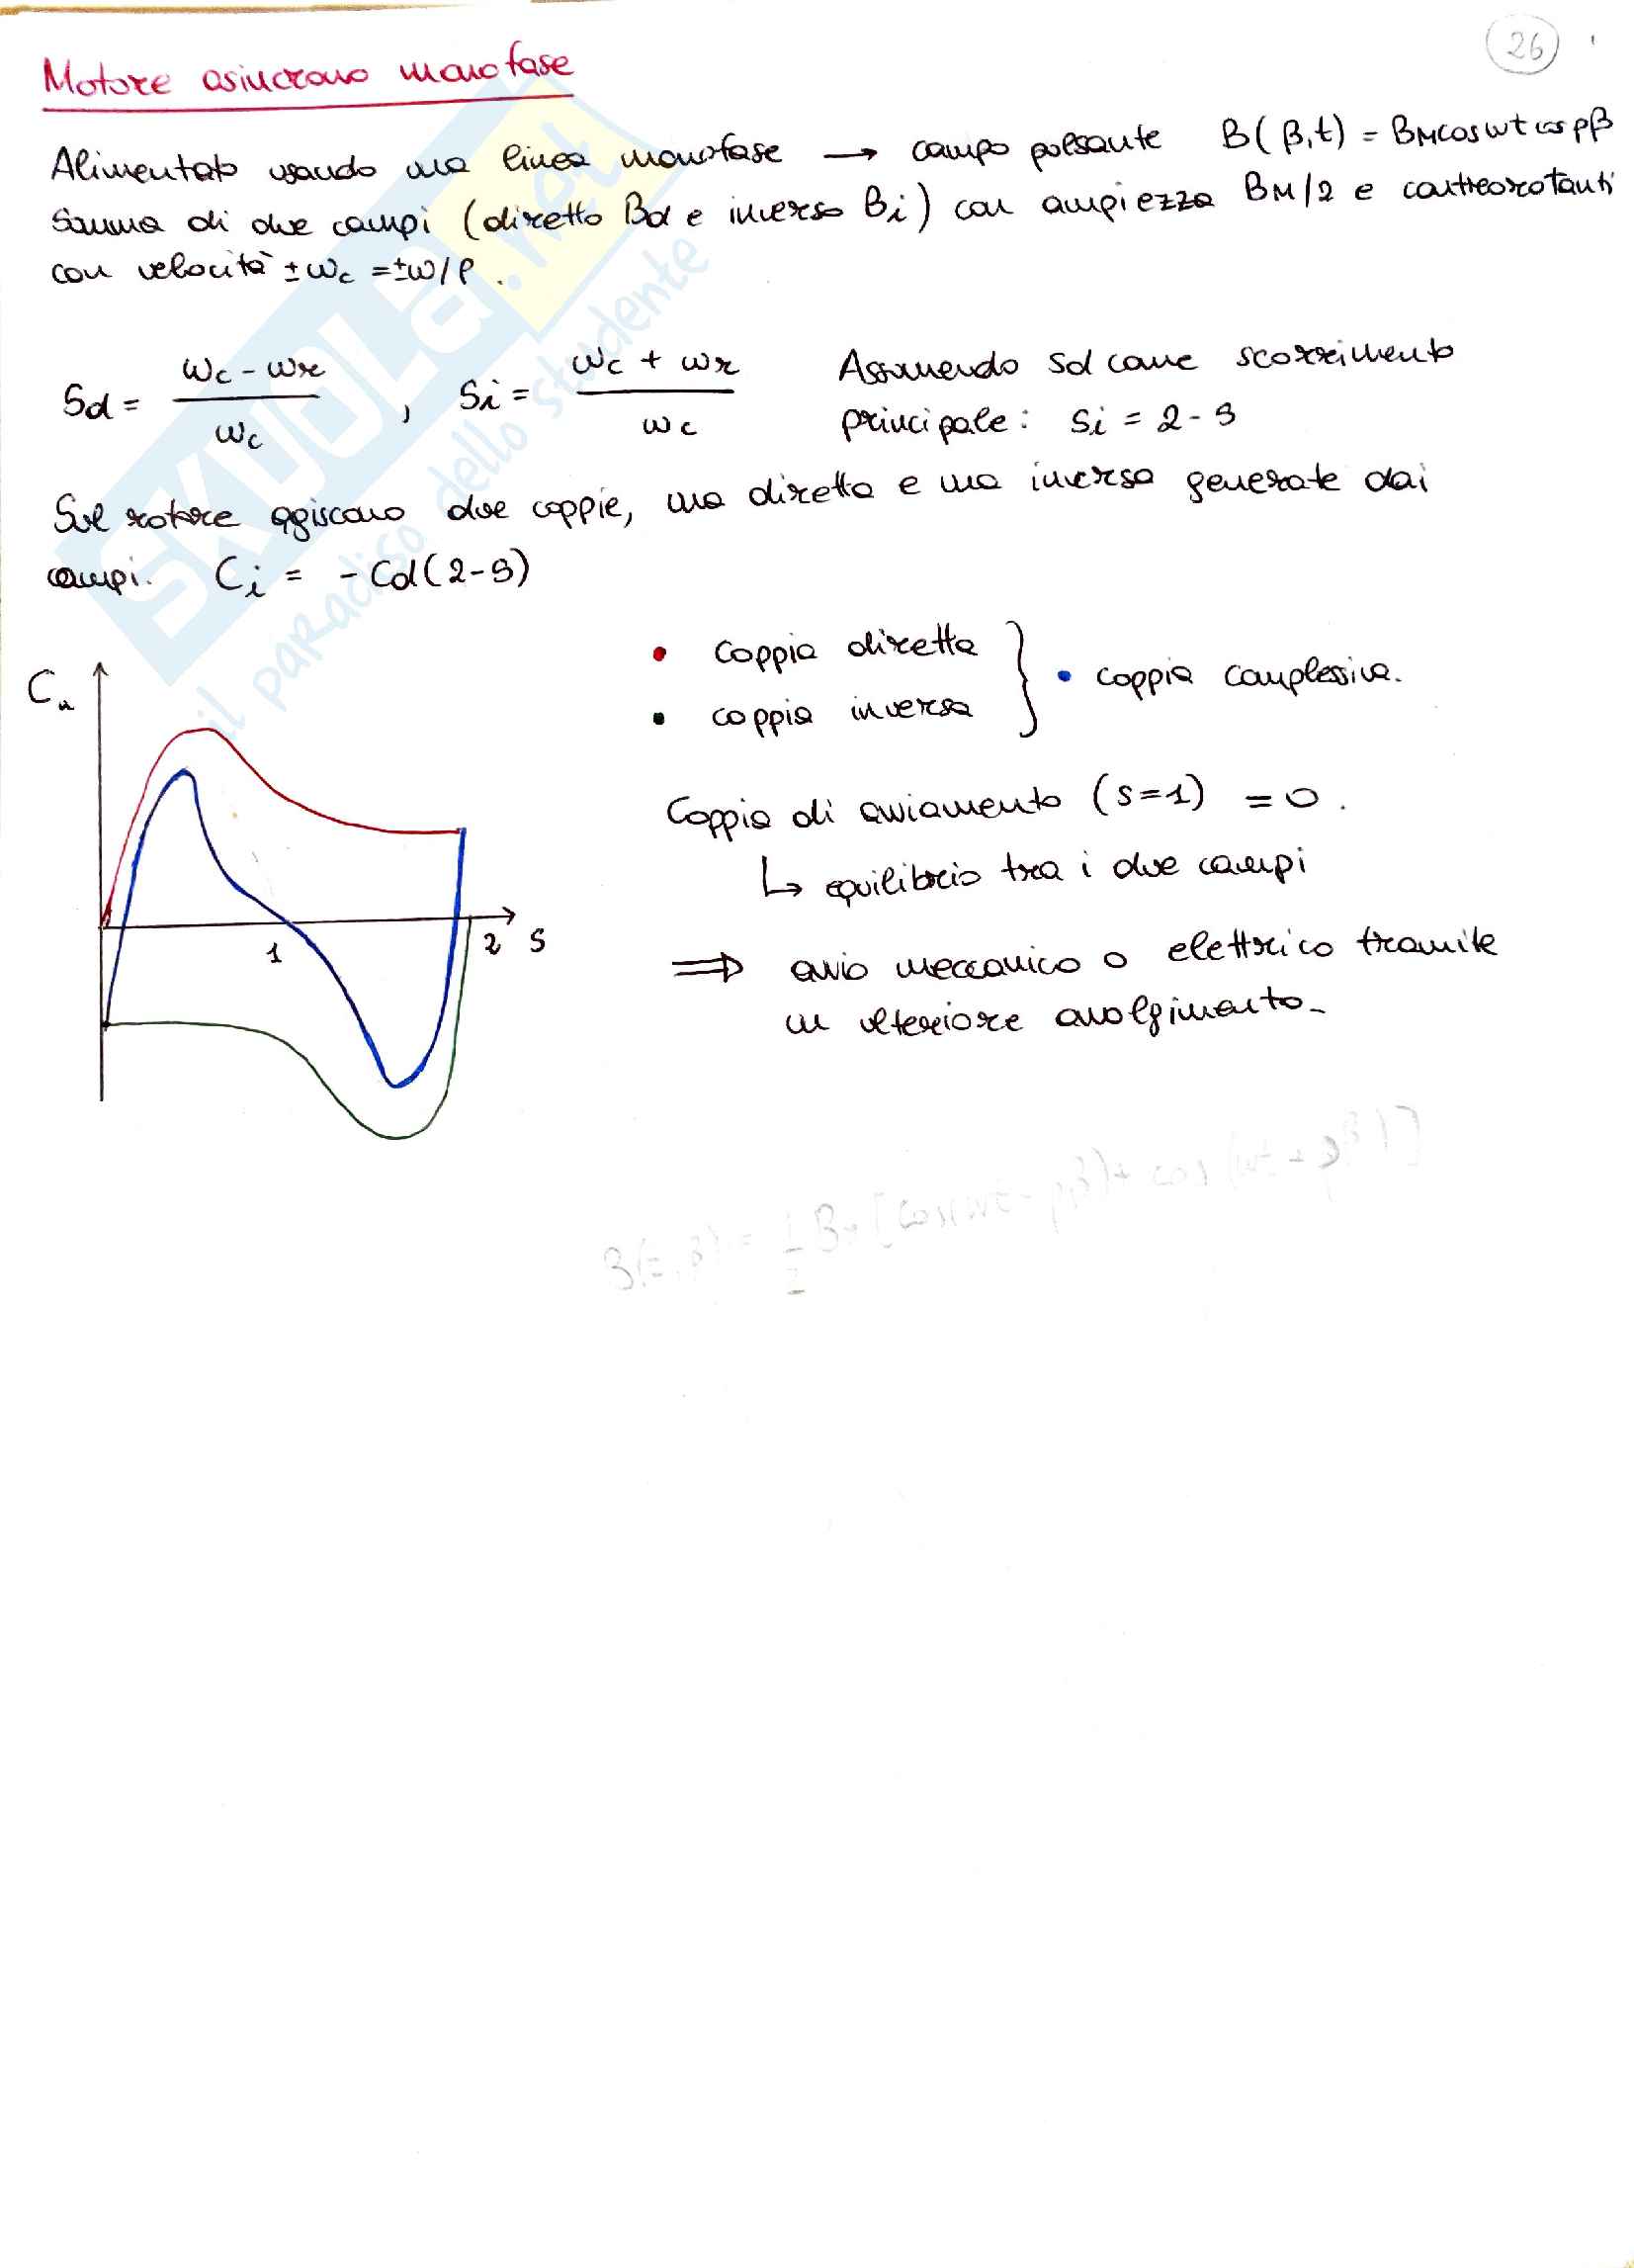 26
Motore asincrono monofase
Alimentato usando una linea monofase → campo pulsante B(β,t) = BMcosωt cos pβ
Somma di due campi (diretto Bd e inverso Bi) con ampiezza BM/2 e controrotanti
con velocità ±ωc = ±ω/p.
Sd = (ωc - ωr)/ωc , Si = (ωc + ωr)/ωc Assumendo Sd come scorrimento
principale: Si = 2 - S
Sul rotore agiscono due coppie, una diretta e una inversa generate dai
campi. Ci = - Cd(2-S)
• coppia diretta
• coppia inversa
} • coppia complessiva.
Cu
1
2 S
Coppia di avviamento (s=1) = 0.
↳ equilibrio tra i due campi
⇒ avvio meccanico o elettrico tramite
un ulteriore avvolgimento.
B(t,β) = 1/2 BM [cos(ωt - pβ) + cos(ωt + pβ)]
SKUOLa.net
il paradiso dello studente